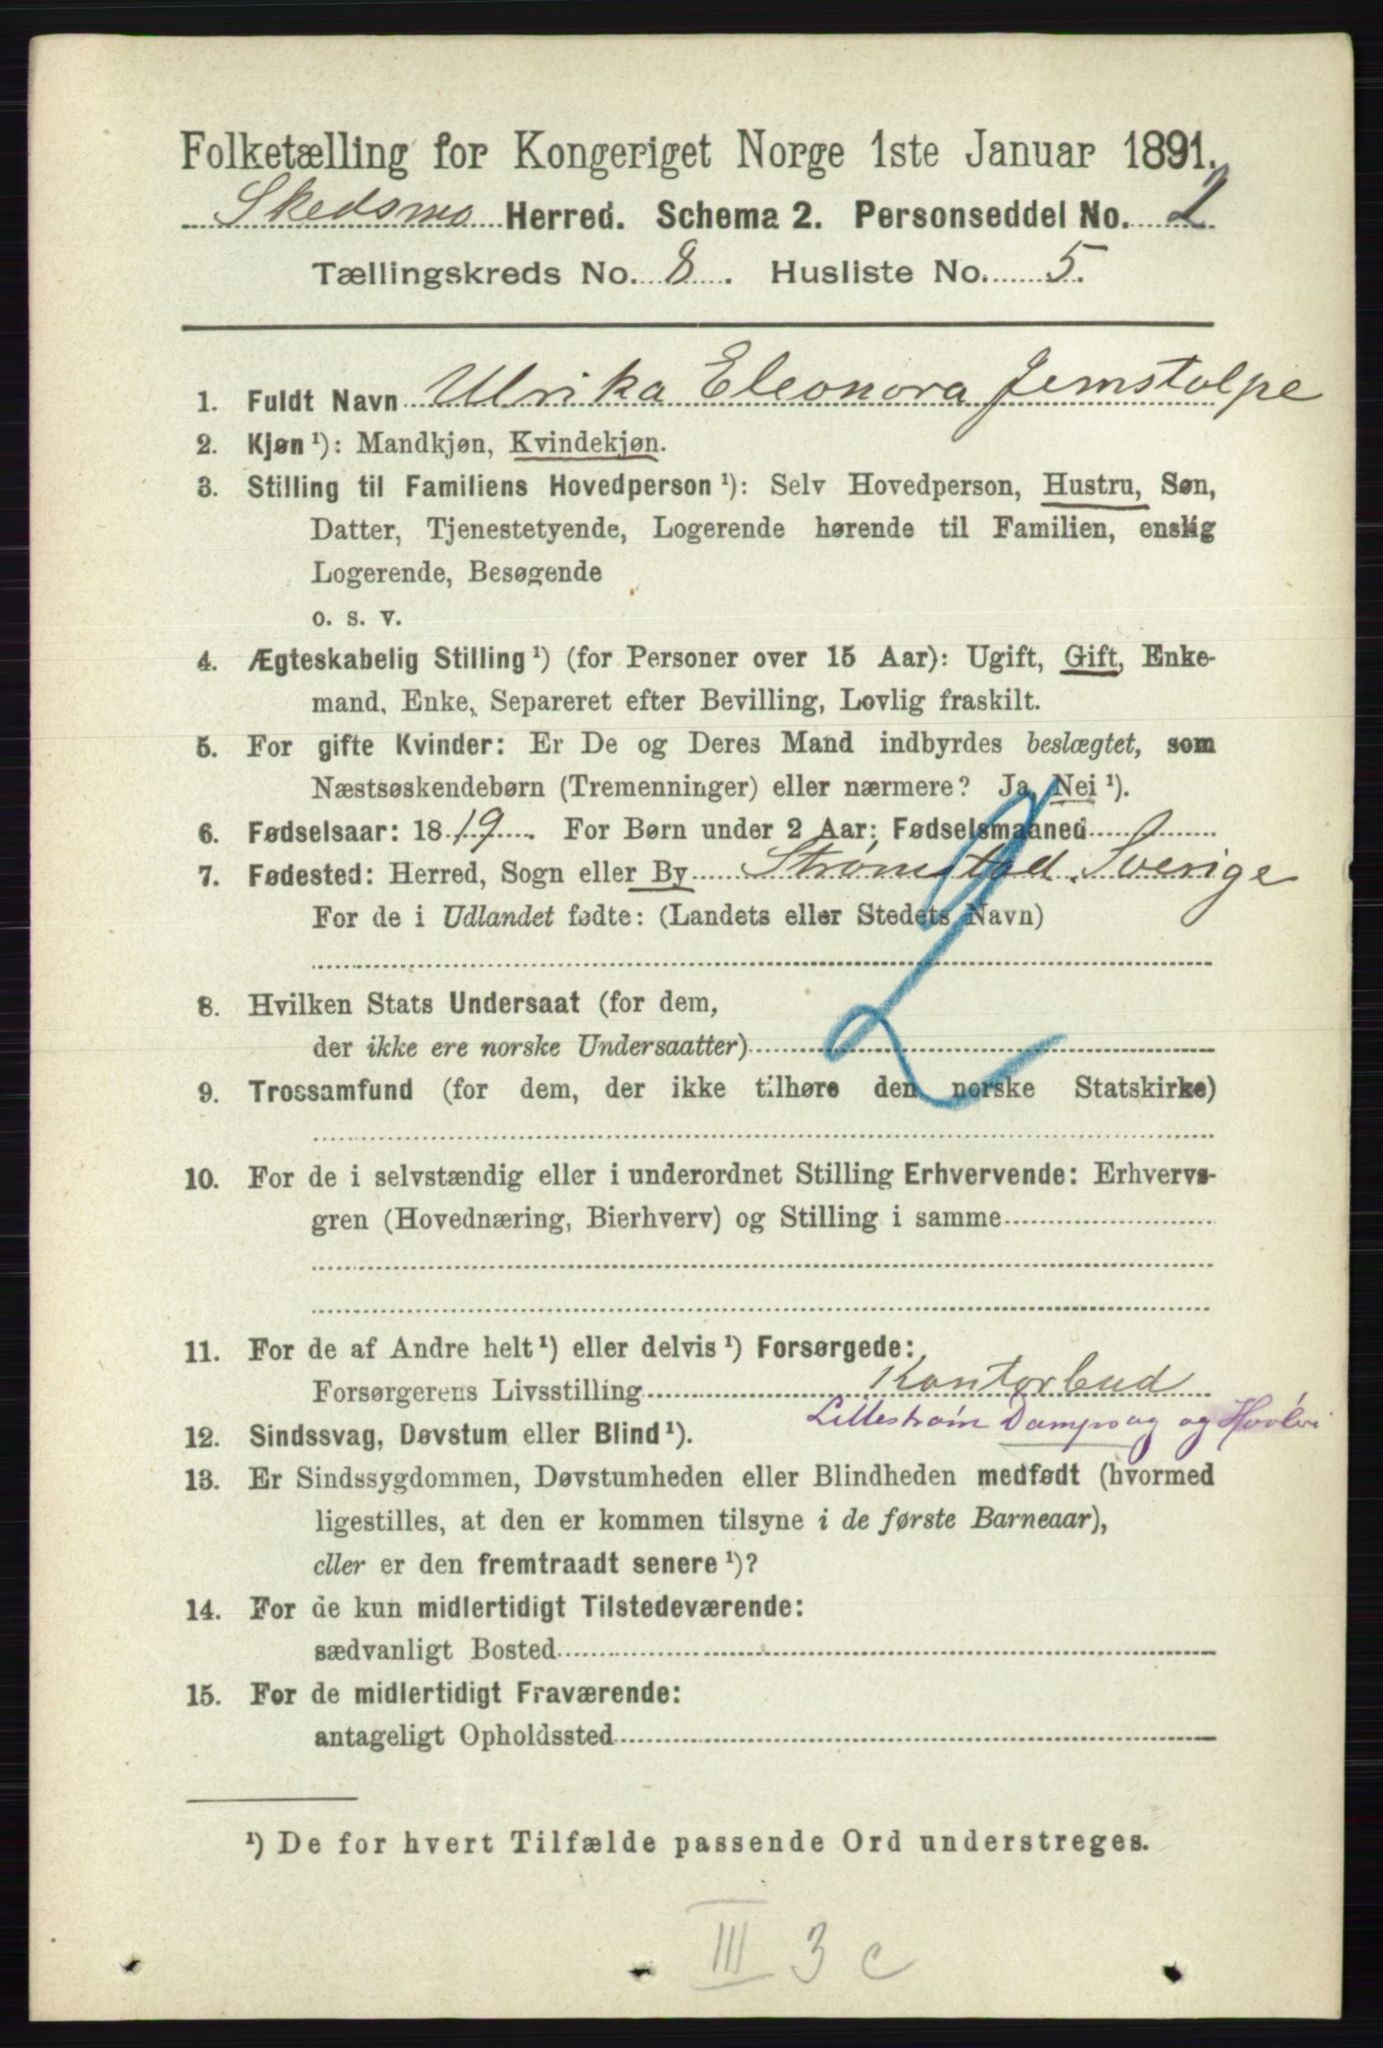 Folketælling for Kongeriget Norge 1ste Januar 1891.
Skedsmo Herred. Schema 2. Personseddel No. 2
Tællingskreds No. 8. Husliste No. 5.
1. Fuldt Navn Ulrika Eleonora Jemstolpe
2. Kjøn ¹): Mandkjøn, Kvindekjøn.
3. Stilling til Familiens Hovedperson ¹): Selv Hovedperson, Hustru, Søn,
Datter, Tjenestetyende, Logerende hørende til Familien, enslig
Logerende, Besøgende
o. s. v.
4. Ægteskabelig Stilling ¹) (for Personer over 15 Aar): Ugift, Gift, Enke-
mand, Enke, Separeret efter Bevilling, Lovlig fraskilt.
5. For gifte Kvinder: Er De og Deres Mand indbyrdes beslægtet, som
Næstsøskendebørn (Tremenninger) eller nærmere? Ja, Nei ¹).
6. Fødselsaar: 1819. For Børn under 2 Aar: Fødselsmaaned
7. Fødested: Herred, Sogn eller By Strømstad. Sverige
For de i Udlandet fødte: (Landets eller Stedets Navn)
8. Hvilken Stats Undersaat (for dem,
der ikke ere norske Undersaatter)
9. Trossamfund (for dem, der ikke tilhøre den norske Statskirke)
10. For de i selvstændig eller i underordnet Stilling Erhvervende: Erhvervs-
gren (Hovednæring, Bierhverv) og Stilling i samme
11. For de af Andre helt ¹) eller delvis ¹) Forsørgede:
Forsørgerens Livsstilling Kontorbud
Lillestrøm Dampsag og Høvleri
12. Sindssvag, Døvstum eller Blind ¹).
13. Er Sindssygdommen, Døvstumheden eller Blindheden medfødt (hvormed
ligestilles, at den er kommen tilsyne i de første Barneaar),
eller er den fremtraadt senere ¹)?
14. For de kun midlertidigt Tilstedeværende:
sædvanligt Bosted
15. For de midlertidigt Fraværende:
antageligt Opholdssted
¹) De for hvert Tilfælde passende Ord understreges.
III 3 c